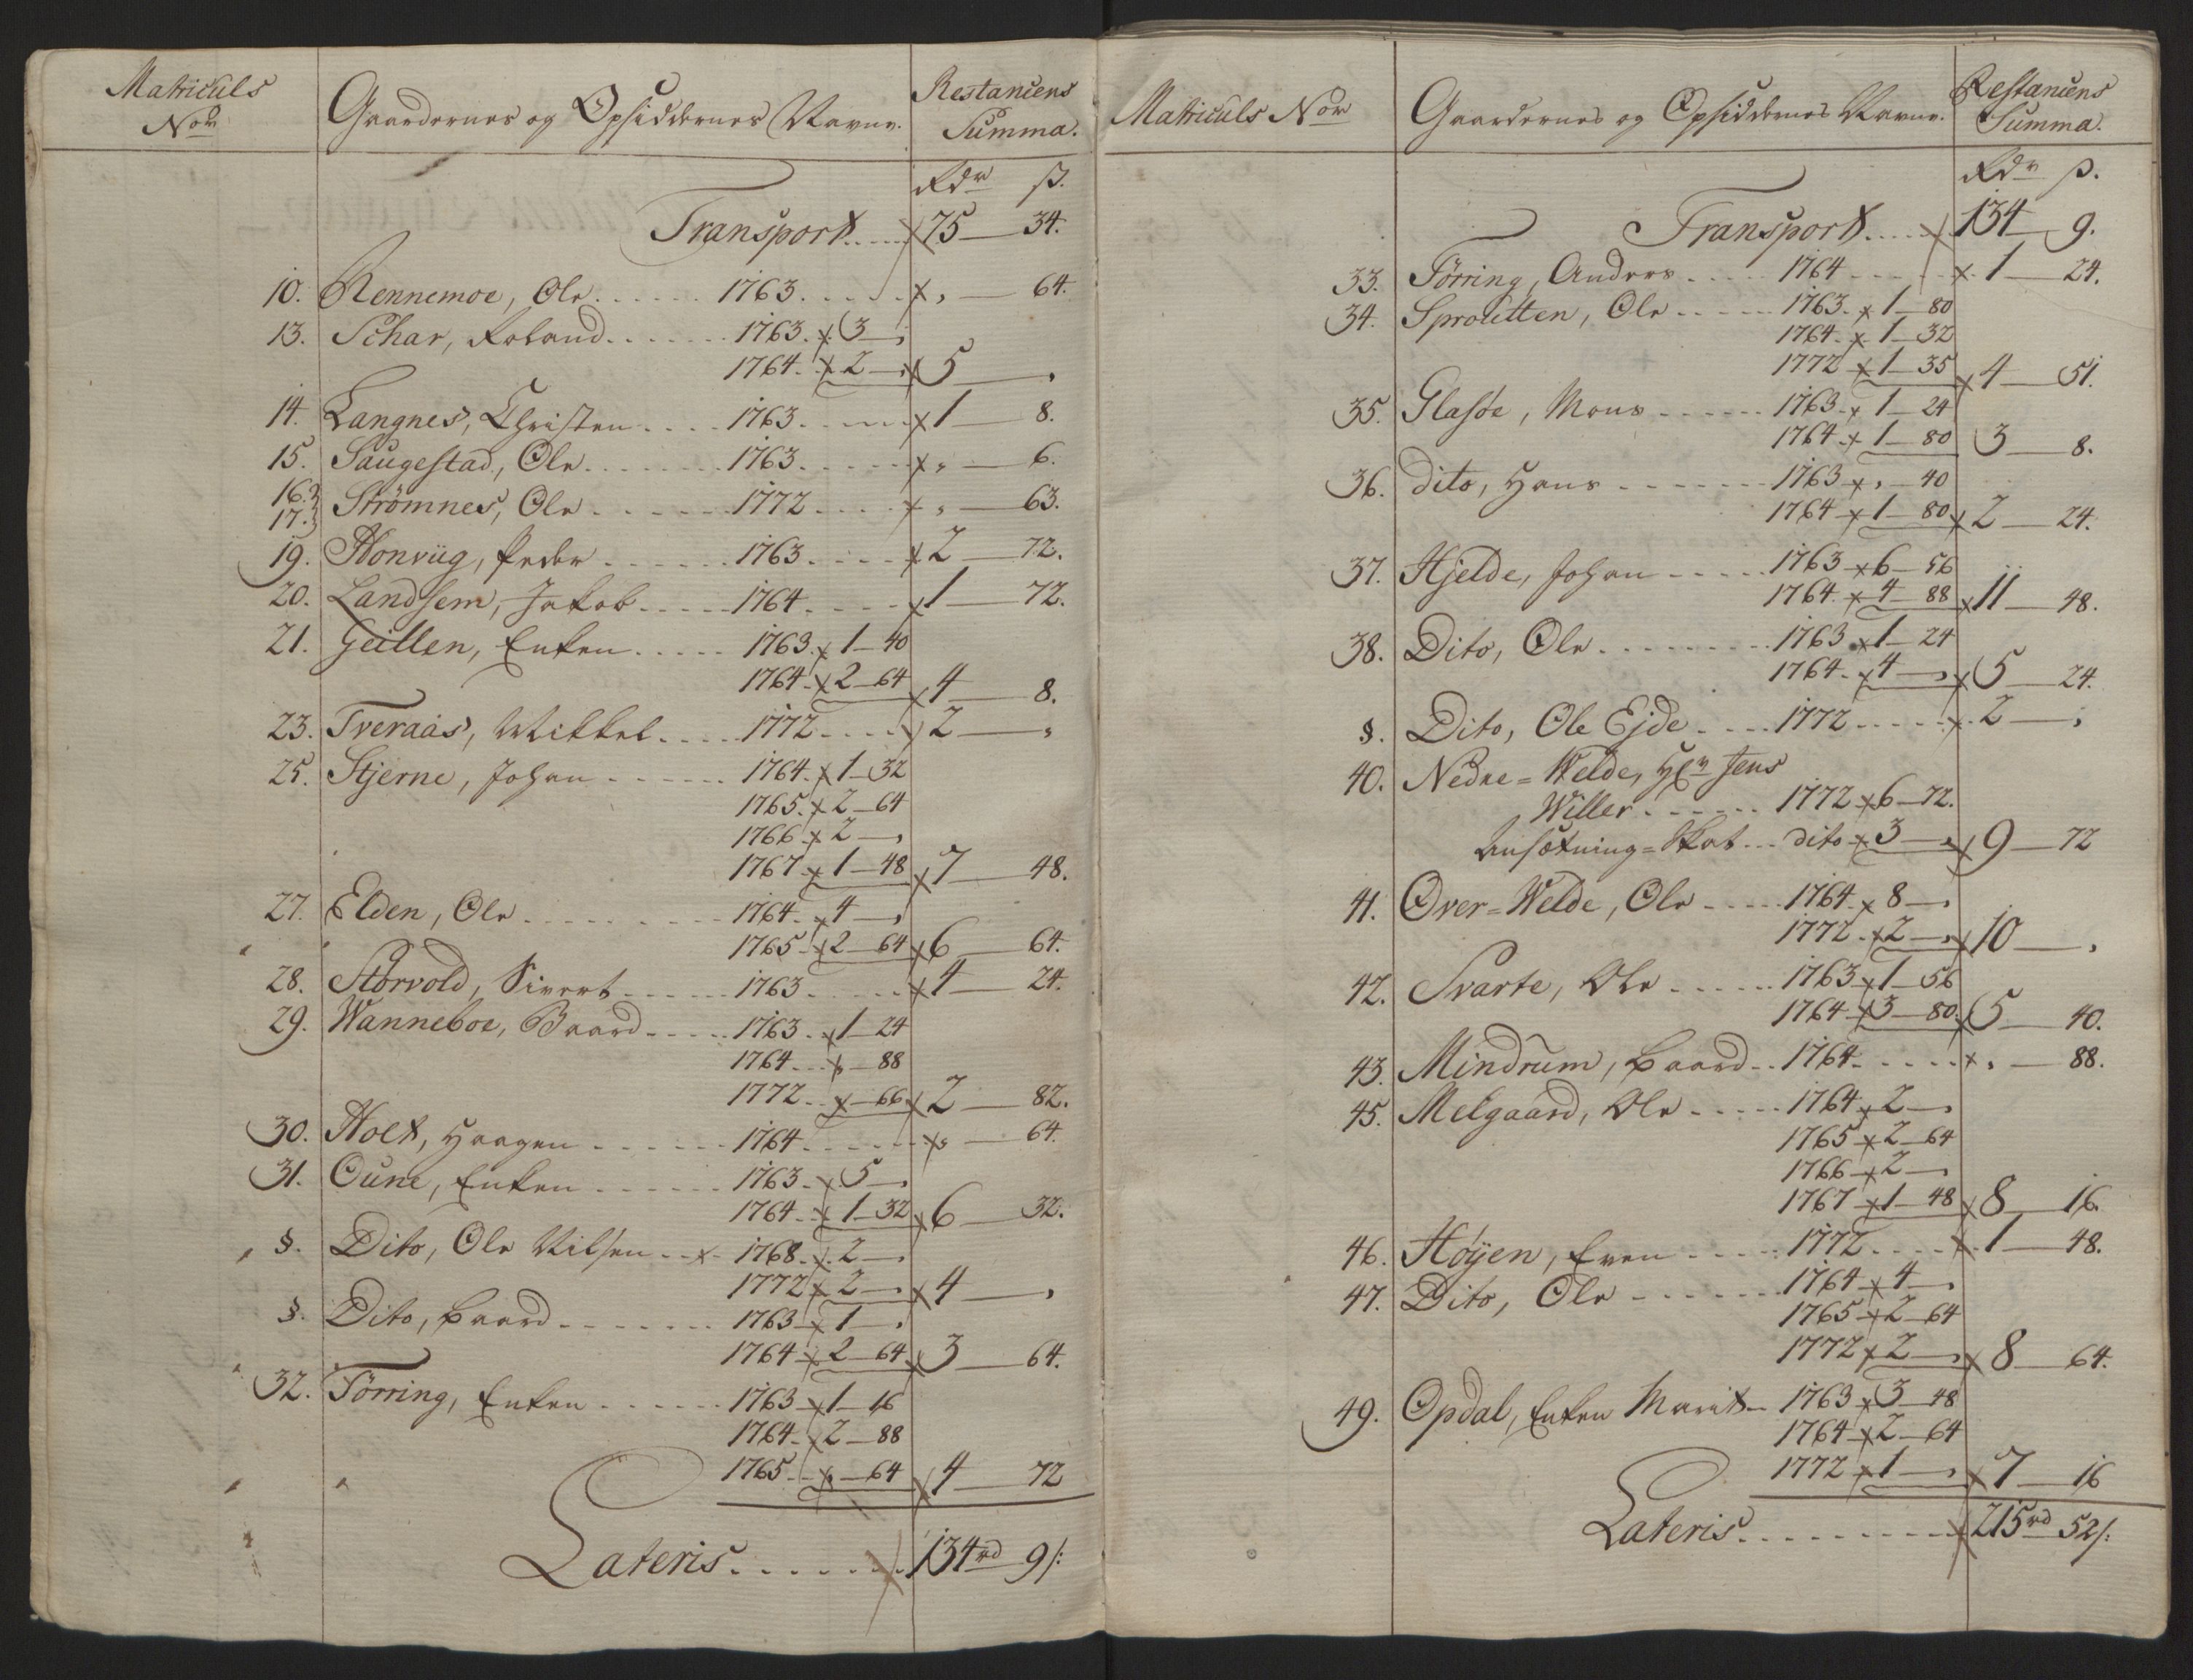 Matriculs
No
Gaardernes og Opsiddernes Navne.
Restancens
Summa.
Rdr ß.
Transport..... 75 — 34.
10. Rennemoe, Ole...... 1763..... „ — 64.
13. Schar, Roland....... 1763. 3 — „
1764. 2 — „ 5 — „
14. Langnes, Christen.... 1763..... 1 — 8.
15. Saugestad, Ole....... 1763..... „ — 6.
16.
17. Strömnes, Ole...... 1772..... „ — 63.
19. Honvüg, Peder...... 1763.... 2 — 72.
20. Landsem, Jakob..... 1764.... 1 — 72.
21. Geillen, Enken..... 1763. 1 — 40
1764. 2 — 64 4 — 8.
23. Tveraas, Mikkel.... 1772.... 2 — „
25. Stjerne, Johan...... 1764. 1 — 32
1765. 2 — 64
1766 2 — „
1767 1 — 48 7 — 48.
27. Elden, Ole......... 1764. 4 — „
1765 2 — 64 6 — 64.
28. Storvold, Sivert...... 1763..... 4 — 24.
29. Wanneboe, Baard..... 1763. 1 — 24
1764... „ — 88
1772.. „ — 66 2 — 82.
30. Holt, Haagen...... 1764...... „ — 64.
31. Oune, Enken...... 1763. 5 — „
1764. 1 — 32 6 — 32.
§. Dito, Ole Nilsen... 1768. 2 — „
1772 2 — „ 4 — „
§. Dito, Baard....... 1763 1 — „
1764 2 — 64 3 — 64.
32. Törring, Enken...... 1763 1 — 16
1764. 2 — 88
1765. „ — 64 4 — 72
Lateris....... 134rd 9ß:
Matriculs Nor
Gaardernes og Opsiddernes Navne.
Restancens
Summa.
Rdr ß.
Transport..... 134 — 9.
33. Törring, Anders..... 1764..... 1 — 24.
34. Sprouten, Ole..... 1763. 1 — 80
1764. 1 — 32
1772 1 — 35 4 — 51.
35. Glasöe, Mons...... 1763. 1 — 24
1764. 1 — 80 3 — 8.
36. dito, Hans....... 1763 „ — 40
1764 1 — 80 2 — 24.
37. Hjelde, Johan..... 1763 6 — 56
1764. 4 — 88 11 — 48.
38. Dito, Ole......... 1763 1 — 24
1764. 4 — „ 5 — 24.
§. Dito, Ole Ejde.... 1772..... 2 — „
40. Nedre=Welde, Hr Jens
Willer...... 1772 6 — 72.
Ansætning=Skat... dito 3 — „ 9 — 72
41. Over=Welde, Ole..... 1764. 8 — „
1772. 2 — „ 10 — „
42. Svarte, Ole...... 1763 1 — 56
1764. 3 — 80. 5 — 40.
43. Mindrum, Baard.. 1764..... „ — 88.
45. Melgaard, Ole..... 1764 2 — „
1765 2 — 64
1766 2 — „
1767 1 — 48 8 — 16.
46. Höyen, Even..... 1772.... 1 — 48.
47. Dito, Ole...... 1764 4 — „
1765 2 — 64
1772 2 — „ 8 — 64.
49. Opdal, Enken Marit.. 1763 3 — 48
1764 2 — 64
1772 1 — „ 7 — 16
Lateris........ 215rd 52ß.